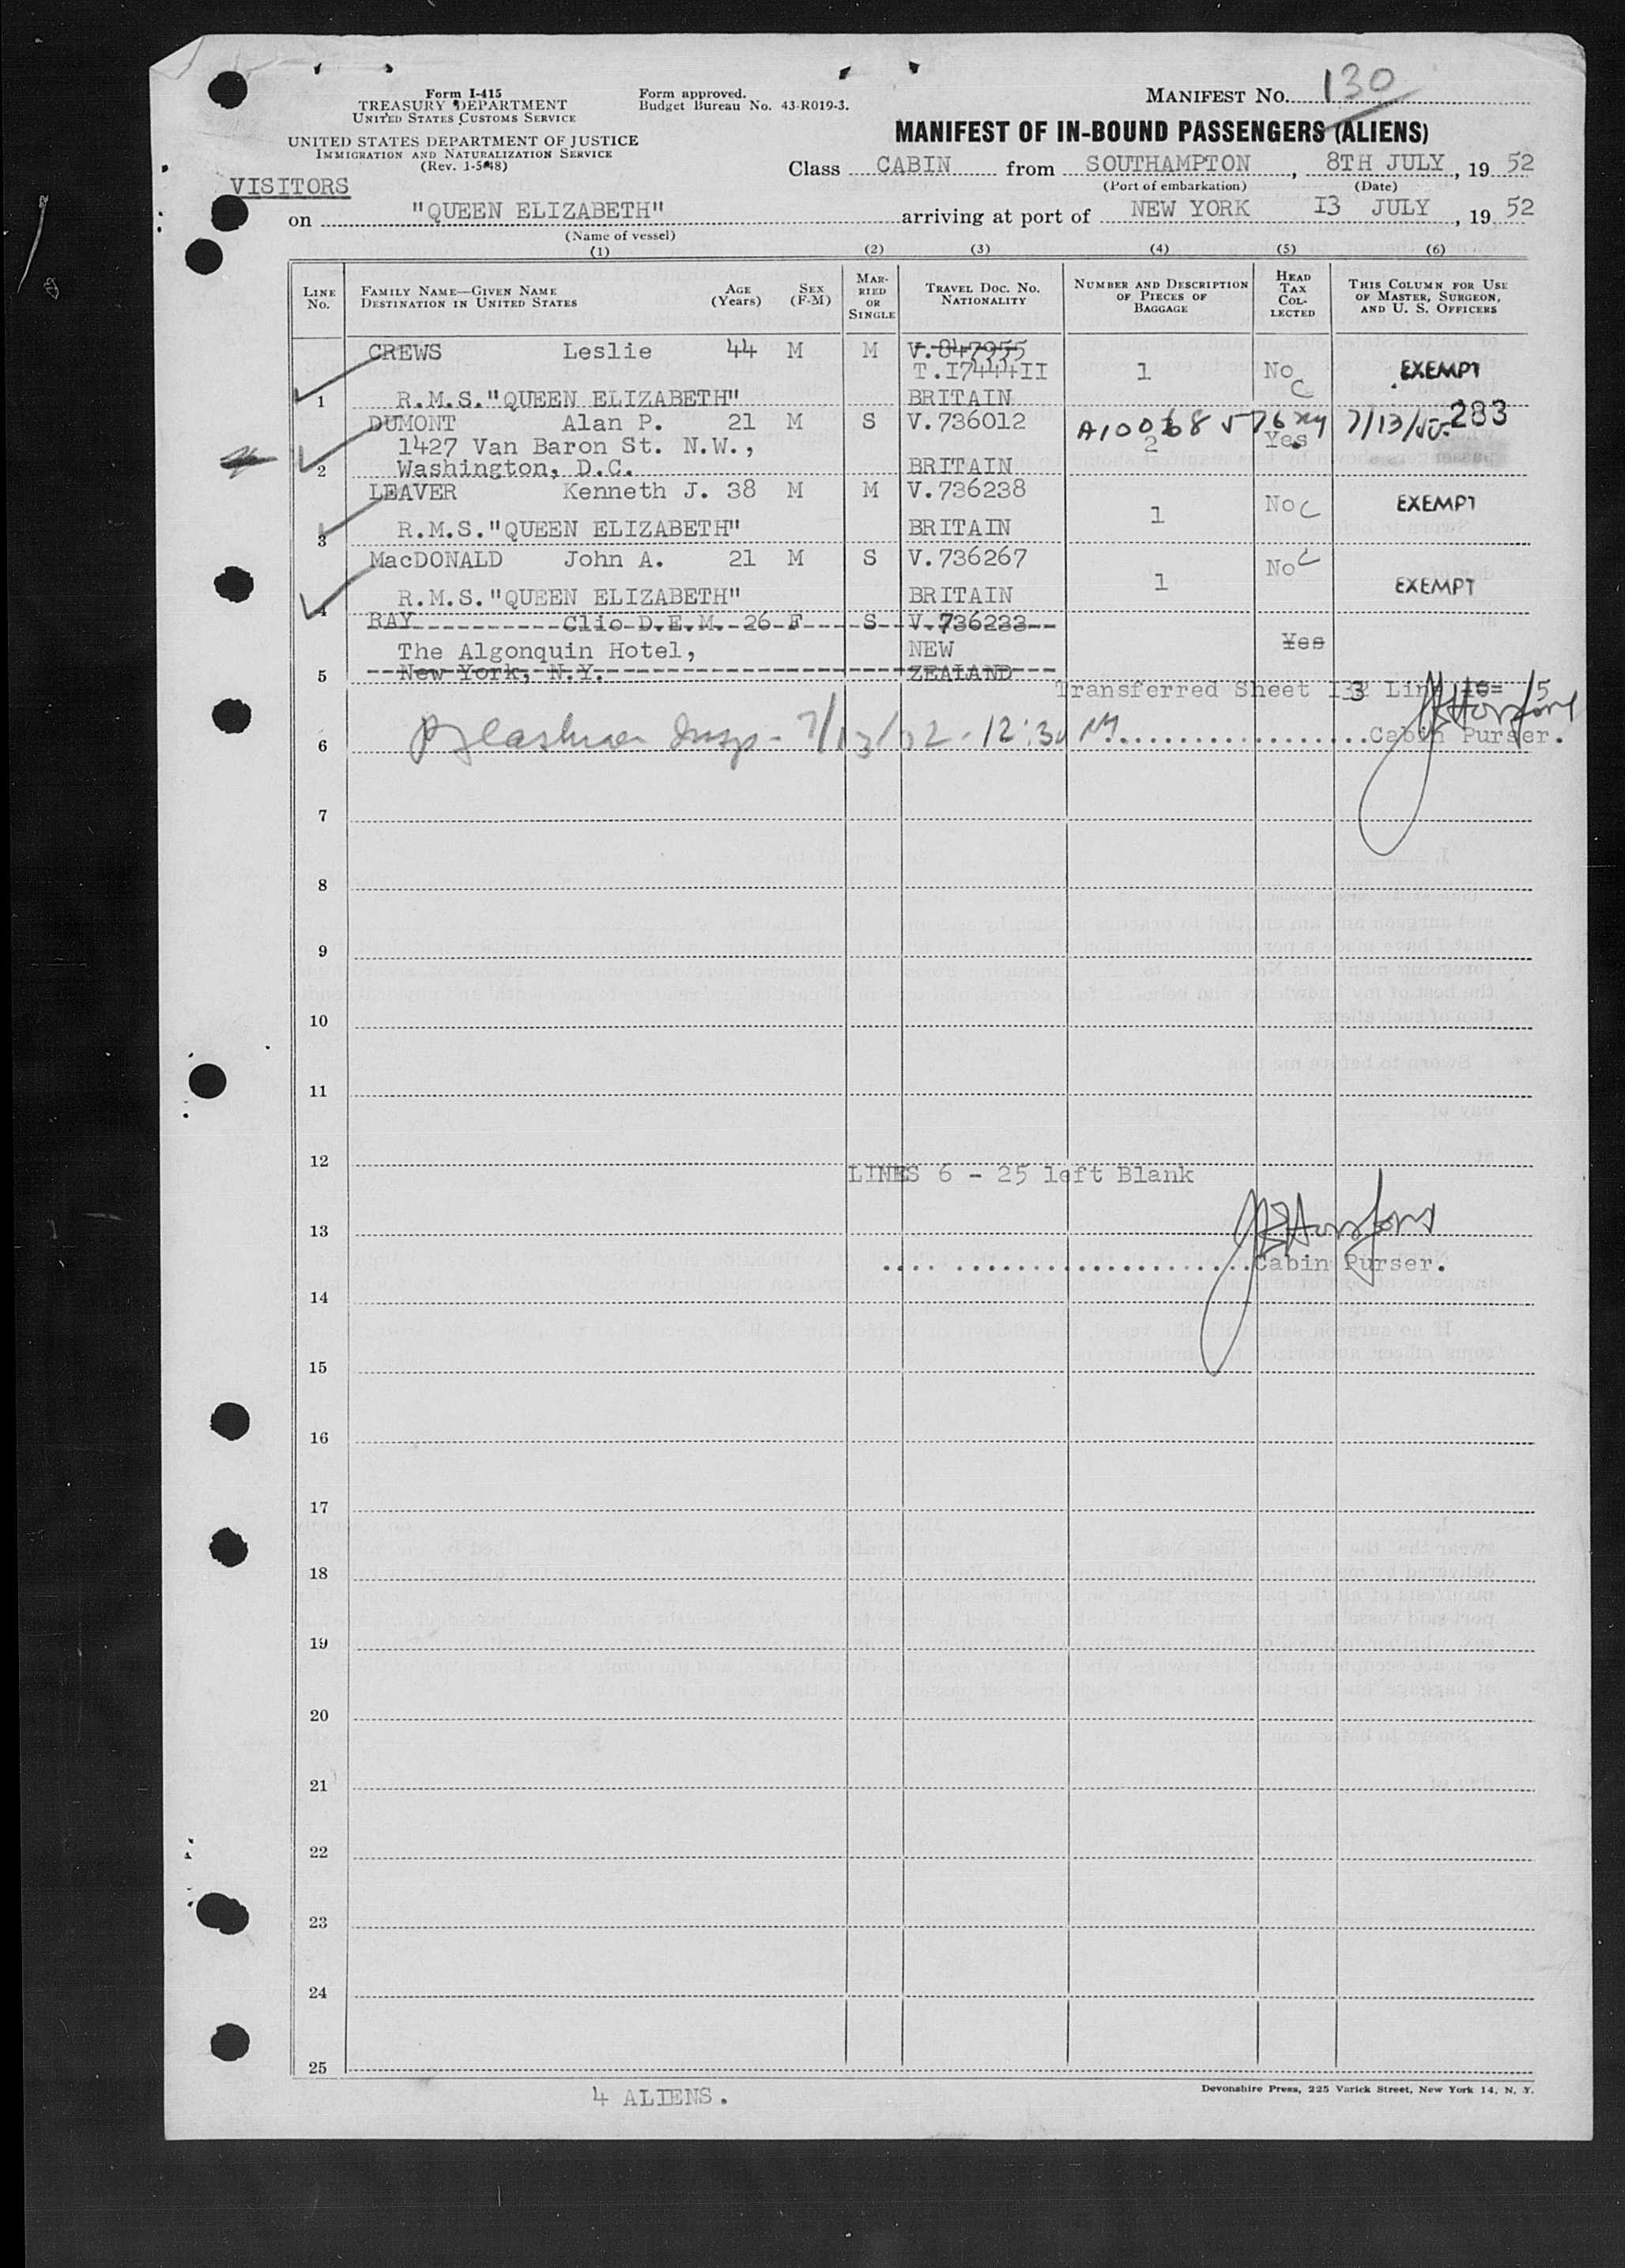 Form I-415
TREASURY DEPARTMENT
UNITED STATES CUSTOMS SERVICE
UNITED STATES DEPARTMENT OF JUSTICE
IMMIGRATION AND NATURALIZATION SERVICE
(Rev. 1-5-48)
Form approved.
Budget Bureau No. 43-R019-3.
MANIFEST NO. 130
MANIFEST OF IN-BOUND PASSENGERS (ALIENS)
Class CABIN from SOUTHAMPTON, 8TH JULY, 19 52
(Port of embarkation) (Date)
VISITORS
on "QUEEN ELIZABETH" arriving at port of NEW YORK I3 JULY, 19 52
(Name of vessel)
(1) (2) (3) (4) (5) (6)
LINE NO. FAMILY NAME—GIVEN NAME DESTINATION IN UNITED STATES AGE (Years) SEX (F-M) MARRIED OR SINGLE TRAVEL DOC. NO. NATIONALITY NUMBER AND DESCRIPTION OF PIECES OF BAGGAGE HEAD TAX COLLECTED THIS COLUMN FOR USE OF MASTER, SURGEON, AND U. S. OFFICERS
CREWS Leslie 44 M M V.847955
T.I7444II 1 No C EXEMPT
1 R.M.S."QUEEN ELIZABETH" BRITAIN
DUMONT Alan P. 21 M S V.736012 283
1427 Van Baron St. N.W., 2 Yes
2 Washington, D.C. BRITAIN
LEAVER Kenneth J. 38 M M V.736238 1 No C EXEMPT
3 R.M.S."QUEEN ELIZABETH" BRITAIN
MacDONALD John A. 21 M S V.736267 1 No C EXEMPT
4 R.M.S."QUEEN ELIZABETH" BRITAIN
RAY Clio D.E.M. 26 F S V.736233
The Algonquin Hotel, NEW Yes
5 New York, N.Y. ZEALAND
Transferred Sheet 133 Line 15
6 Insp - 7/13/52 - 12:30 PM Cabin Purser.
7
8
9
10
11
12
LINES 6 - 25 left Blank
13
Cabin Purser.
14
15
16
17
18
19
20
21
22
23
24
25
4 ALIENS.
Devonshire Press, 225 Varick Street, New York 14, N. Y.